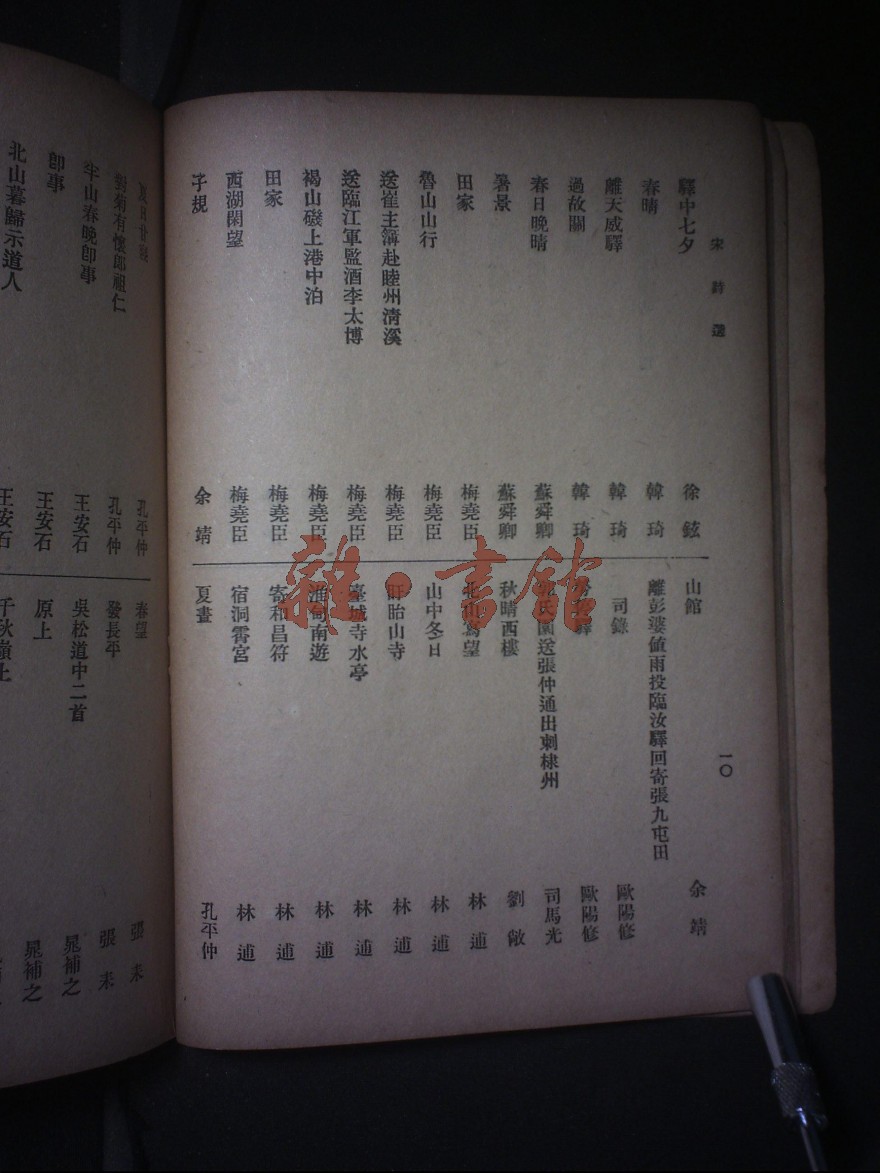 宋詩選
一〇
驛中七夕 徐鉉
春晴 韓琦
離天威驛 韓琦
過故關 韓琦
春日晚晴 蘇舜卿
暑景 蘇舜卿
田家 梅堯臣
魯山山行 梅堯臣
送崔主簿赴睦州清溪 梅堯臣
送臨江軍監酒李太博 梅堯臣
褐山磯上港中泊 梅堯臣
田家 梅堯臣
西湖閑望 梅堯臣
子規 余靖
山館 余靖
離彭婆值雨投臨汝驛回寄張九屯田
司錄 歐陽修
歐陽修
園送張仲通出刺棣州 司馬光
秋晴西樓 劉敞
北山寫望 林逋
山中冬日 林逋
盱眙山寺 林逋
臺城寺水亭 林逋
淮甸南遊 林逋
寄和昌符 林逋
宿洞霄宮 林逋
夏晝 孔平仲
夏日 孔平仲
對菊有懷郎祖仁 孔平仲
半山春晚卽事 王安石
卽事 王安石
北山暮歸示道人 王安石
春望 張耒
發長平 張耒
吳松道中二首 晁補之
原上 晁補之
千秋嶺上
雜·書館